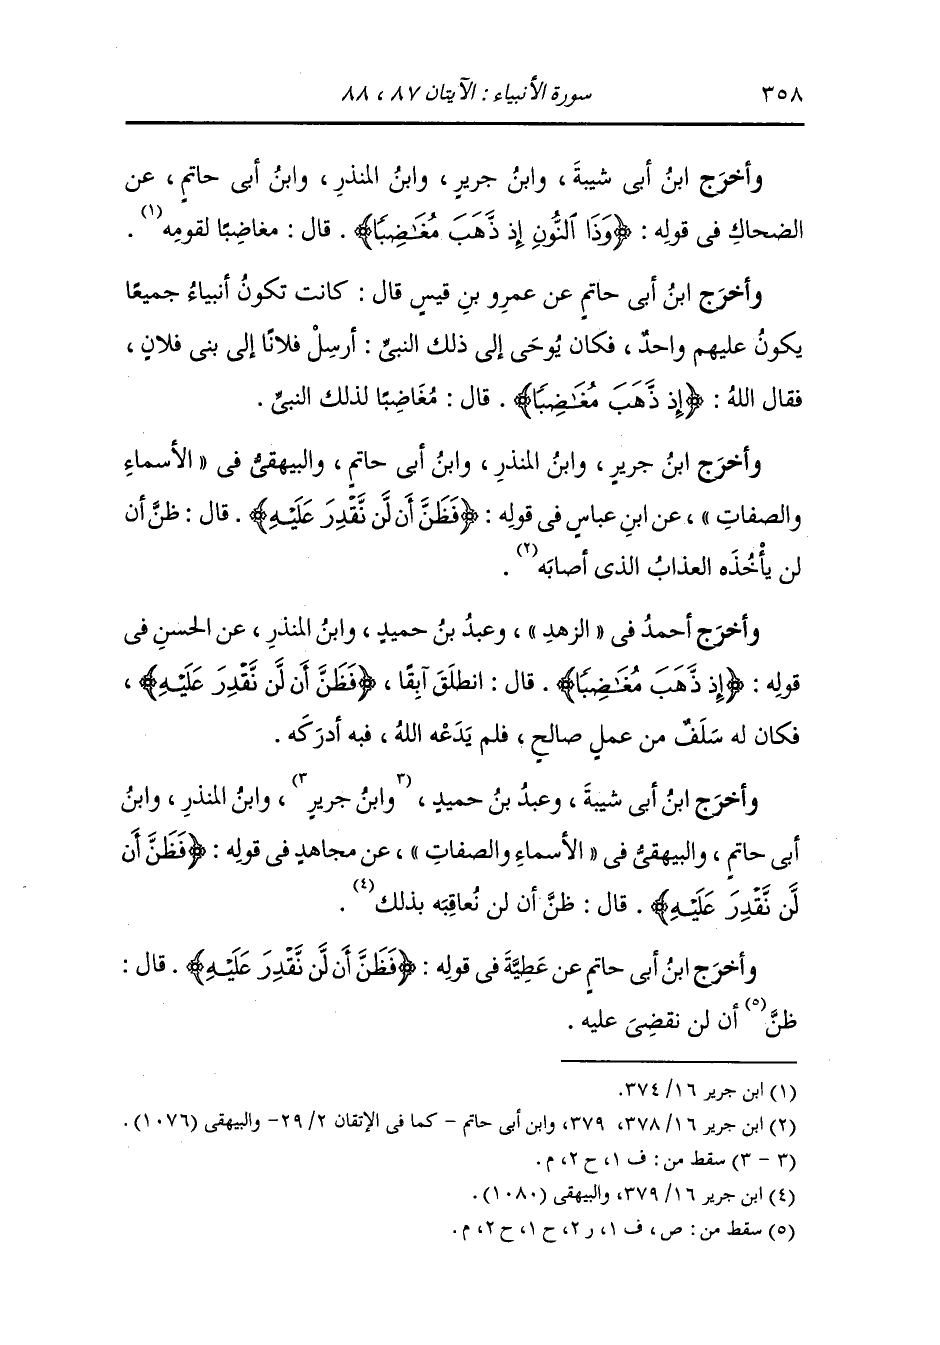 ٣٥٨ سورة الأنبياء : الآيتان ٨٧ ، ٨٨
وأخرَج ابنُ أبى شيبةَ ، وابنُ جريرٍ ، وابنُ المنذرِ ، وابنُ أبى حاتمٍ ، عن
الضحاكِ فى قولِه : ﴿وَذَا ٱلنُّونِ إِذ ذَّهَبَ مُغَٰضِبًا﴾ . قال : مغاضبًا لقومِه(١) .
وأخرَج ابنُ أبى حاتمٍ عن عمرِو بنِ قيسٍ قال : كانت تكونُ أنبياءُ جميعًا
يكونُ عليهم واحدٌ ، فكان يُوحَى إلى ذلك النبىِّ : أرسِلْ فلانًا إلى بنى فلانٍ ،
فقال اللهُ : ﴿إِذ ذَّهَبَ مُغَٰضِبًا﴾ . قال : مُغَاضِبًا لذلك النبىِّ .
وأخرَج ابنُ جريرٍ ، وابنُ المنذرِ ، وابنُ أبى حاتمٍ ، والبيهقىُّ فى « الأسماءِ
والصفاتِ » ، عن ابنِ عباسٍ فى قولِه : ﴿فَظَنَّ أَن لَّن نَّقْدِرَ عَلَيْهِ﴾ . قال : ظنَّ أن
لن يأْخُذَه العذابُ الذى أصابَه(٢) .
وأخرَج أحمدُ فى « الزهدِ » ، وعبدُ بنُ حميدٍ ، وابنُ المنذرِ ، عن الحسنِ فى
قولِه : ﴿إِذ ذَّهَبَ مُغَٰضِبًا﴾ . قال : انطلَقَ آبِقًا ، ﴿فَظَنَّ أَن لَّن نَّقْدِرَ عَلَيْهِ﴾ ،
فكان له سَلَفٌ من عملٍ صالحٍ ، فلم يَدَعْه اللهُ ، فبه أدرَكَه .
وأخرَج ابنُ أبى شيبةَ ، وعبدُ بنُ حميدٍ ، (٣وابنُ جريرٍ٣) ، وابنُ المنذرِ ، وابنُ
أبى حاتمٍ ، والبيهقىُّ فى « الأسماءِ والصفاتِ » ، عن مجاهدٍ فى قولِه : ﴿فَظَنَّ أَن
لَّن نَّقْدِرَ عَلَيْهِ﴾ . قال : ظنَّ أن لن نُعاقِبَه بذلك(٤) .
وأخرَج ابنُ أبى حاتمٍ عن عَطِيَّةَ فى قولِه : ﴿فَظَنَّ أَن لَّن نَّقْدِرَ عَلَيْهِ﴾ . قال :
ظنَّ(٥) أن لن نقضِىَ عليه .
(١) ابن جرير ١٦/ ٣٧٤.
(٢) ابن جرير ١٦/ ٣٧٨، ٣٧٩، وابن أبى حاتم - كما فى الإتقان ٢/ ٢٩- والبيهقى (١٠٧٦) .
(٣ - ٣) سقط من : ف ١، ح ٢، م.
(٤) ابن جرير ١٦/ ٣٧٩، والبيهقى (١٠٨٠) .
(٥) سقط من : ص، ف ١، ر ٢، ح ١، ح ٢، م.